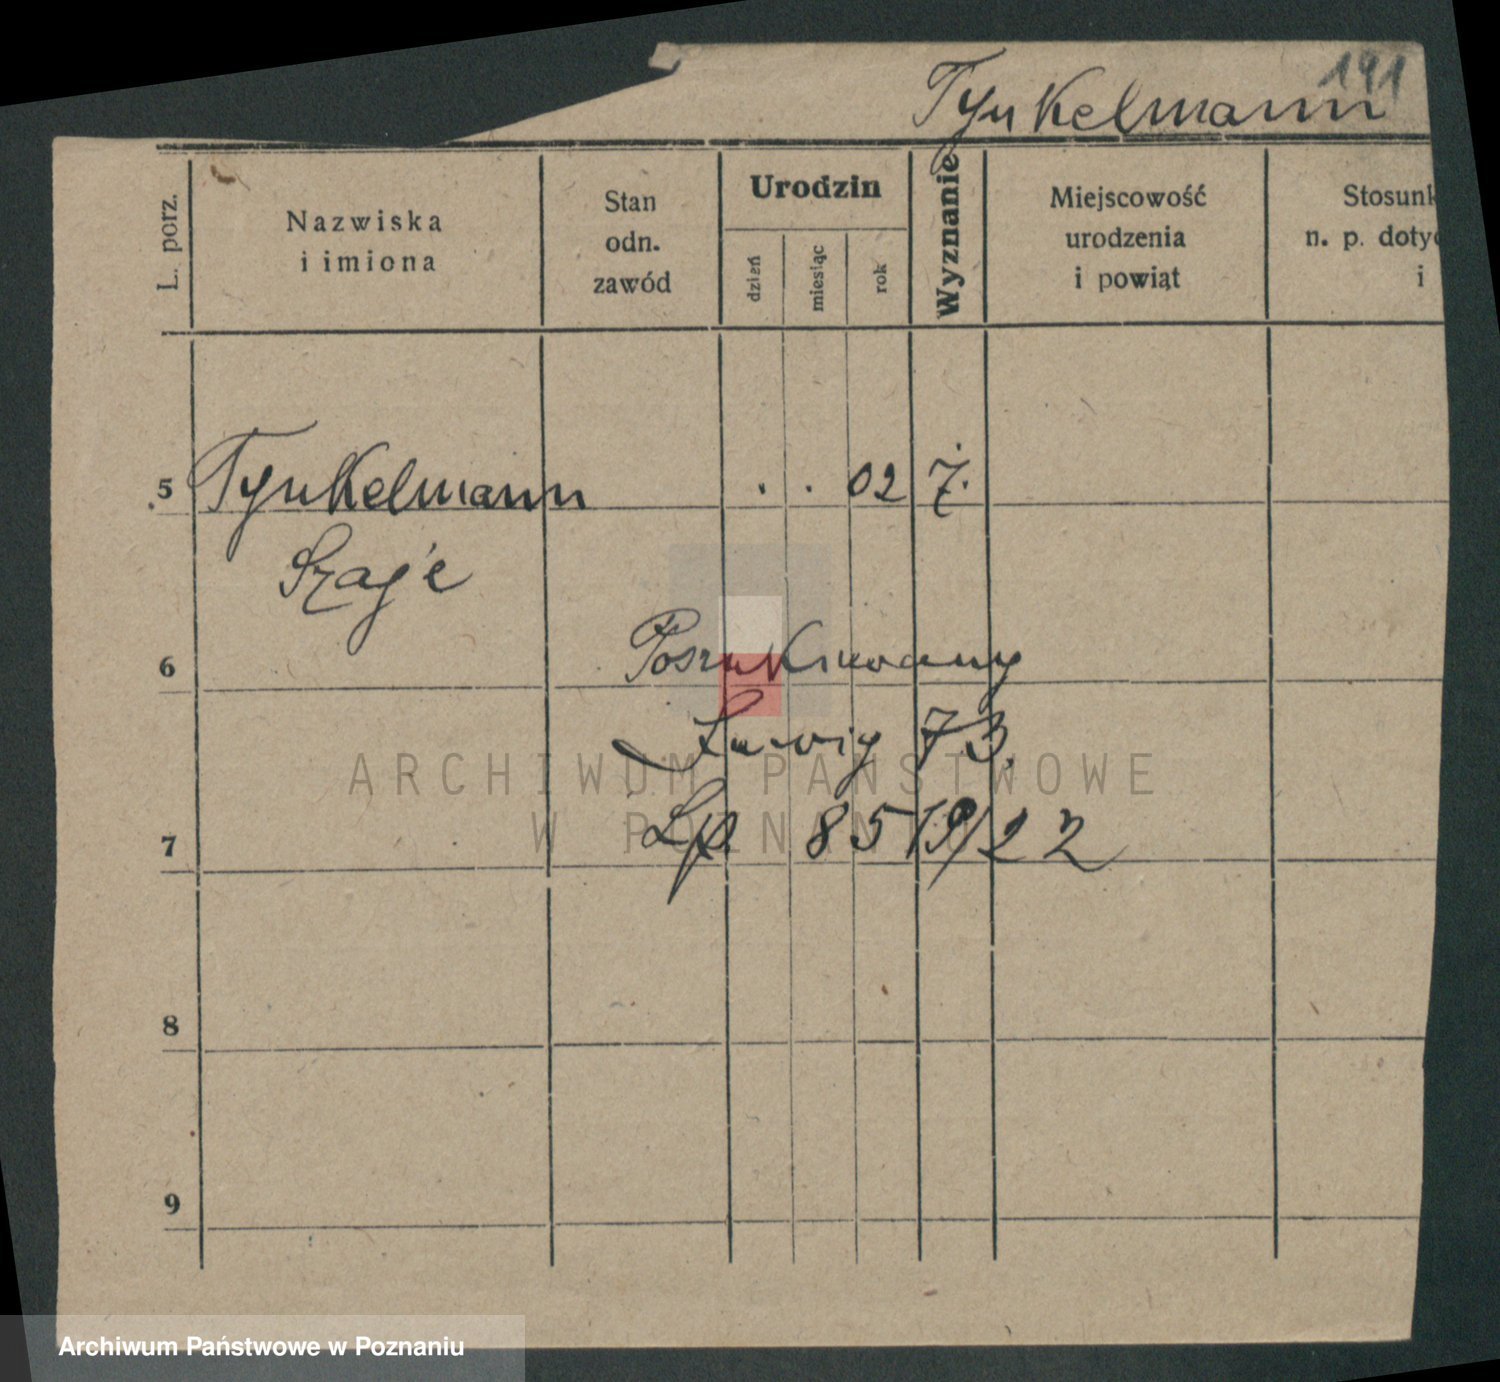 191
Tynkelmann
L. porz.
Nazwiska
i imiona
Stan
odn.
zawód
Urodzin
dzień
miesiąc
rok
Wyznanie
Miejscowość
urodzenia
i powiąt
Stosunk
n. p. dotyc
i
5 Tynkelmann . . 02 ż.
Szaje
6 Poszukiwany
73.
7 Lp. 8519/22
8
9
ARCHIWUM PAŃSTWOWE
W POZNANIU
Archiwum Państwowe w Poznaniu